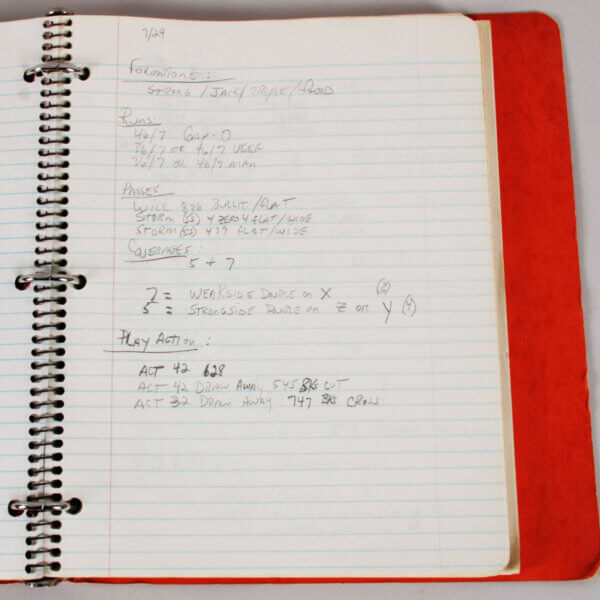 7/29
FORMATIONS:
STRONG / JACK / TRIPLE / FLOOD
RUNS:
46/7 GAP-O
36/7 OR 46/7 VEER
36/7 OR 46/7 MAN
PASSES
WILL 836 BULLIT / FLAT
STORM (S) 4 ZERO 4 FLAT / WIDE
STORM (S) 439 FLAT / WIDE
COVERAGES:
5 + 7
7 = WEAKSIDE DOUBLE ON X
5 = STRONGSIDE DOUBLE ON Z OR Y (Y)
PLAY ACTION:
ACT 42 628
ACT 42 DRAW AWAY 545 BKS CUT
ACT 32 DRAW AWAY 747 BKS CROSS